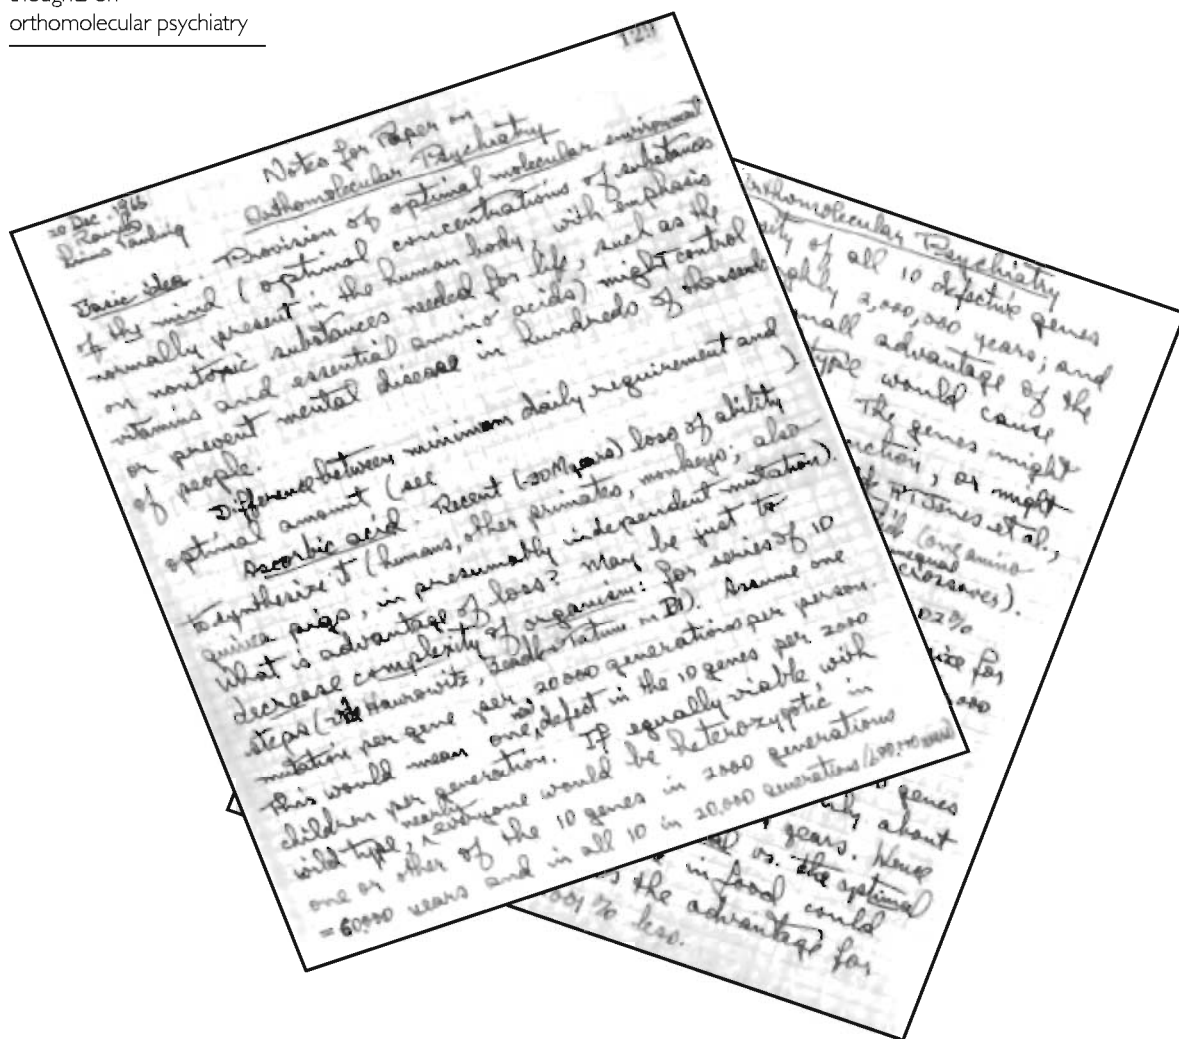 thoughts on
orthomolecular psychiatry
129
Notes for Paper on
Orthomolecular Psychiatry
20 Dec. 1966
Ranch
Linus Pauling
Basic idea. Provision of optimal molecular environment
of the mind (optimal concentrations of substances
normally present in the human body, with emphasis
on nontoxic substances needed for life, such as the
vitamins and essential amino acids) might control
or prevent mental disease in hundreds of thousands
of people.
Difference between minimum daily requirement and
optimal amount (see )
Ascorbic acid. Recent (~20M years) loss of ability
to synthesize it (humans, other primates, monkeys; also
guinea pigs, in presumably independent mutation).
What is advantage of loss? May be just to
decrease complexity of organism: for series of 10
steps (Haurowitz, Beadle + Tatum in B1). Assume one
mutation per gene per 20000 generations per person.
This would mean one new defect in the 10 genes per 2000
children per generation. If equally viable, with
wild type, nearly everyone would be heterozygotic in
one or other of the 10 genes in 2000 generations
= 60,000 years and in all 10 in 20,000 generations/600,000 years)
Orthomolecular Psychiatry
of all 10 defective genes
2,000,000 years; and
small advantage of the
type would cause
The genes might
, or might
Jones et al.,
(one amino
unequal
crossovers).
02%
for
000
genes
about
years. Hence
vs. the optimal
in food could
the advantage for
001% less.